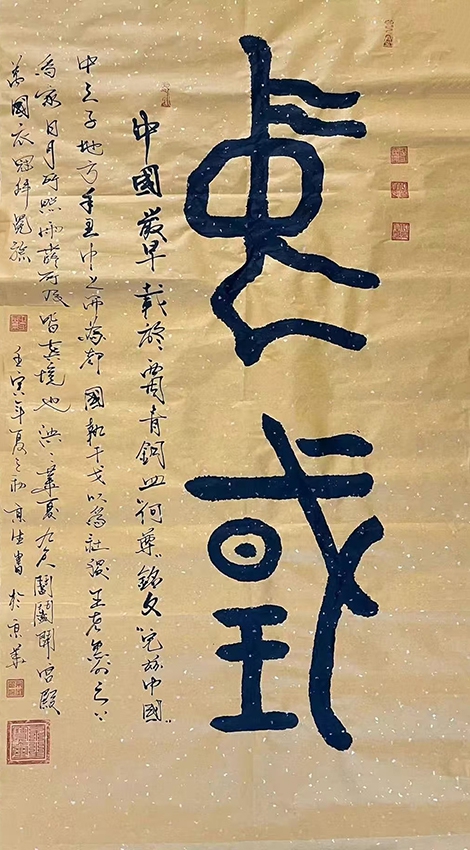 中或
中國最早載於西周青銅皿“何尊”銘文“宅兹中國”
中天子地方千里中之而為都國執干戈以為社稷王者
為家日月所照雨露所及皆吾境也泱泱華夏九天閶闔開宮殿
萬國衣冠拜冕旒
壬寅年夏之初京生書於京華